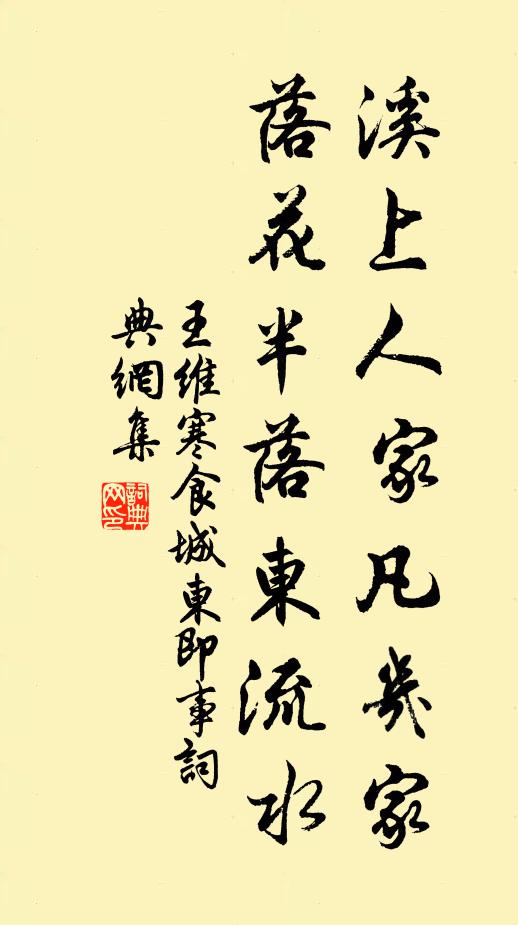 溪上人家凡幾家
落花半落東流水
王維寒食城東即事詞
典網集
詞典網印